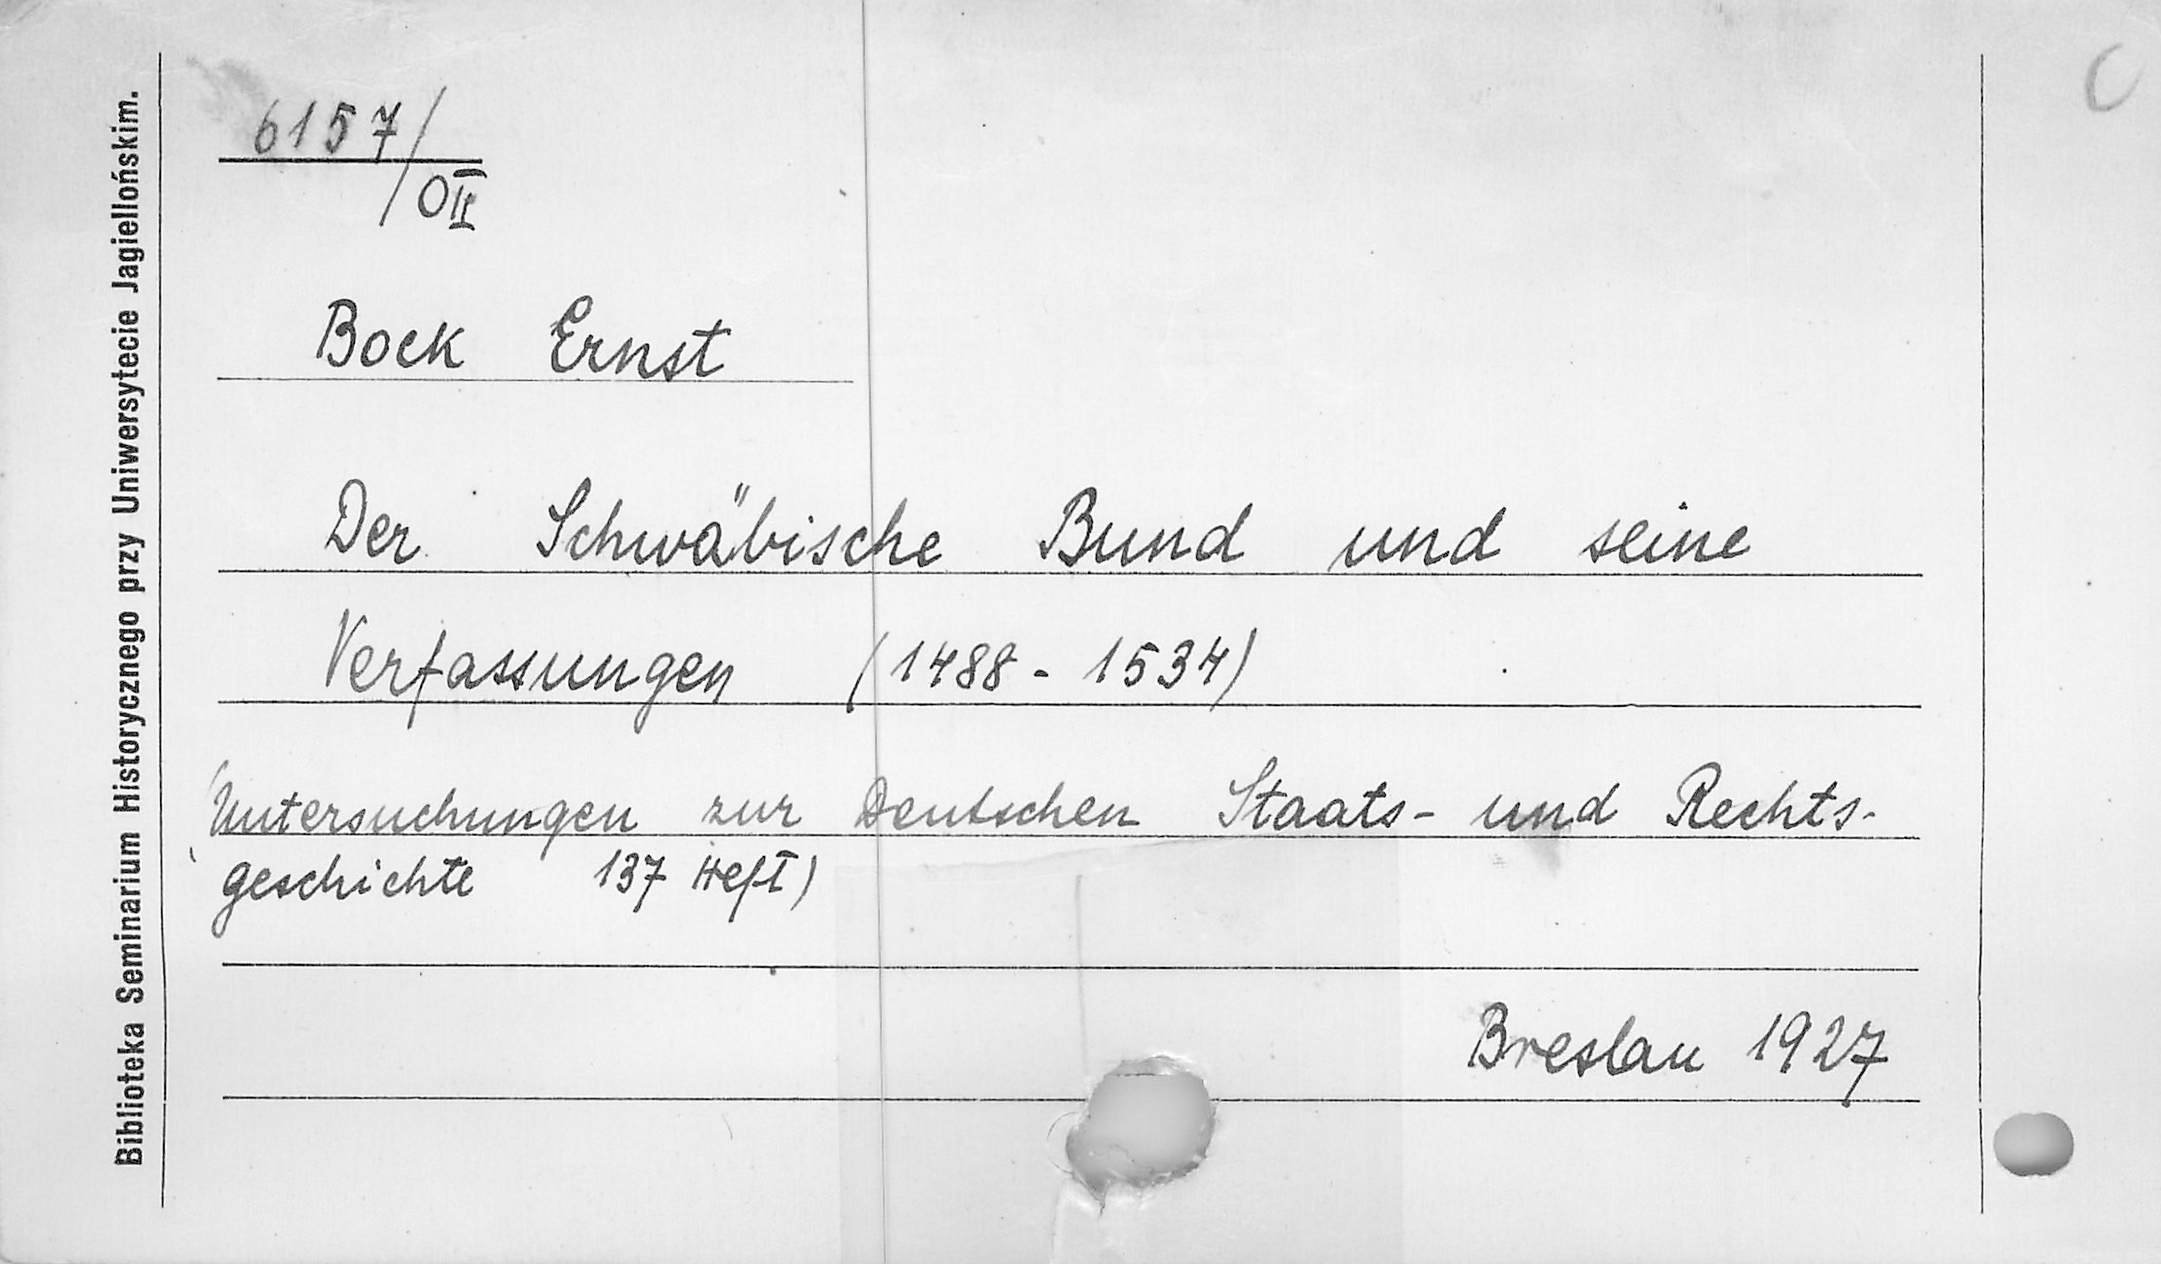 Biblioteka Seminarium Historycznego przy Uniwersytecie Jagiellońskim.
6157/OII
C
Bock Ernst
Der Schwäbische Bund und seine
Verfassungen (1488 - 1534)
(Untersuchungen zur Deutschen Staats- und Rechts-
geschichte 137 Heft)
Breslau 1927